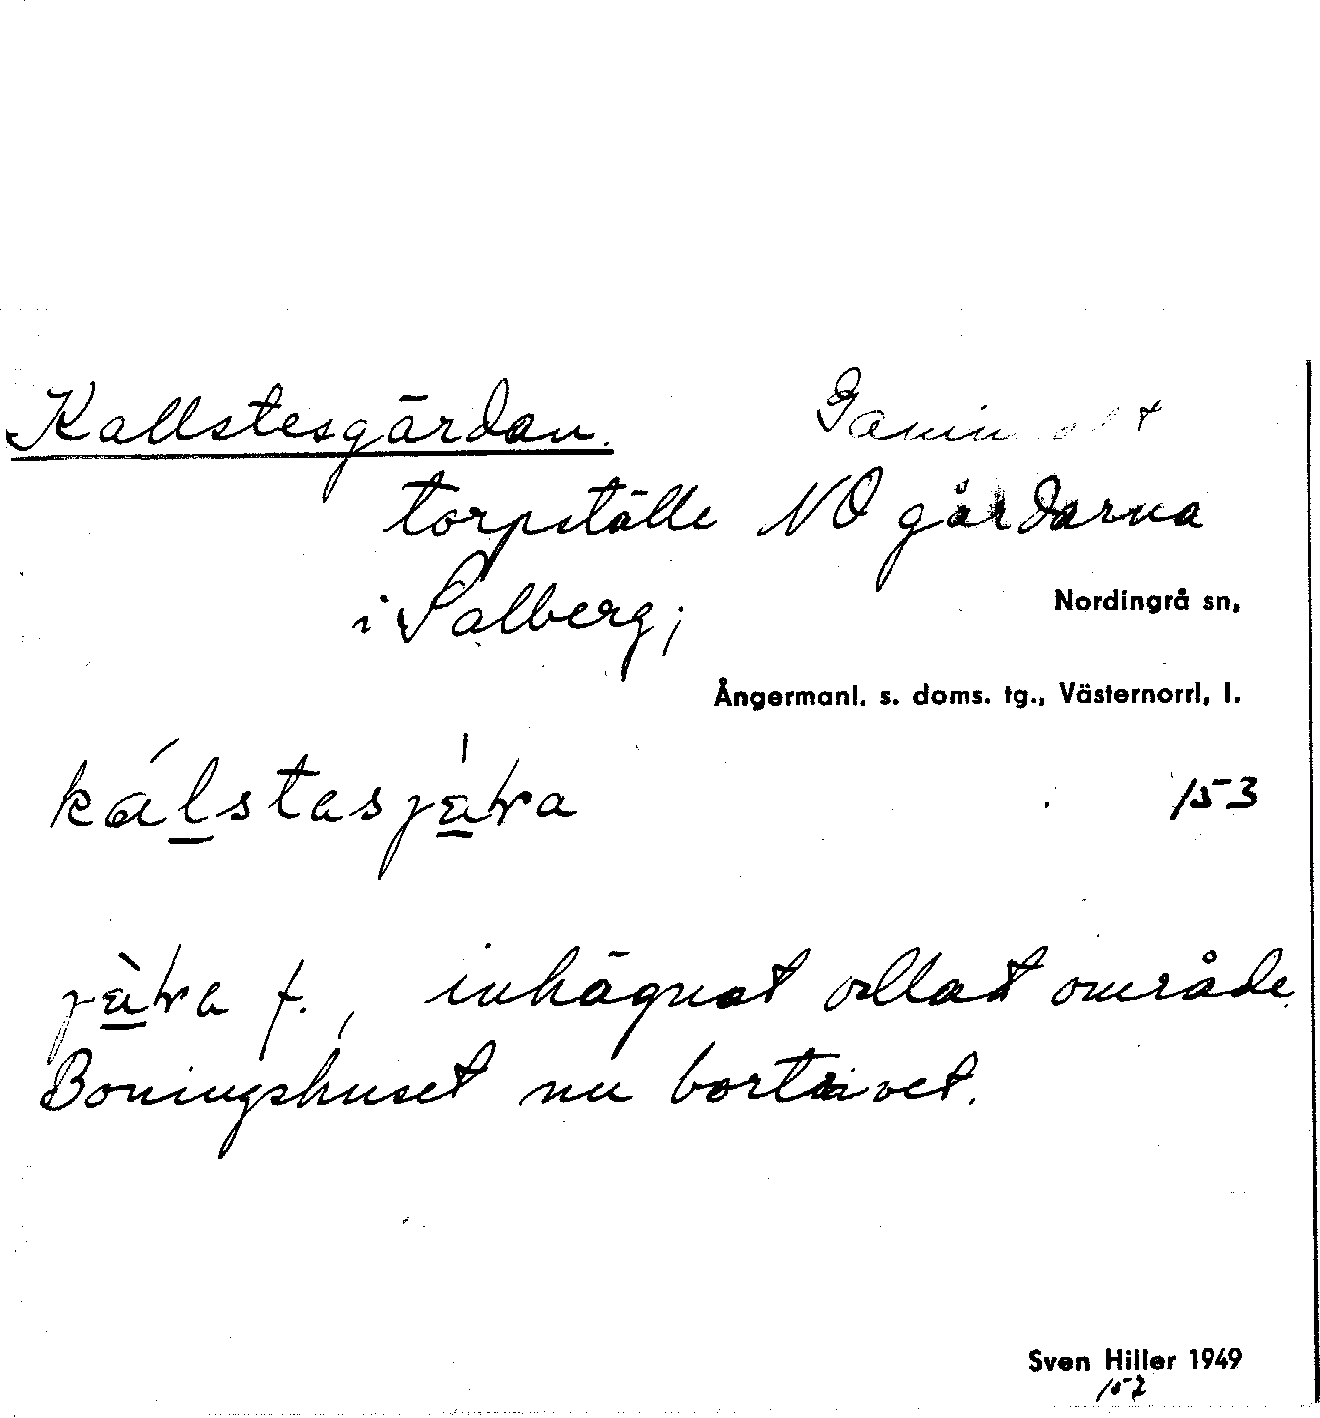 Kallstesgärdan.
torpställe NO gårdarna
i Salberg;
Nordingrå sn,
Ångermanl. s. doms. tg., Västernorrl, l.
153
f., inhägnat odlat område
Boningshuset nu bortrivet.
Sven Hiller 1949
152